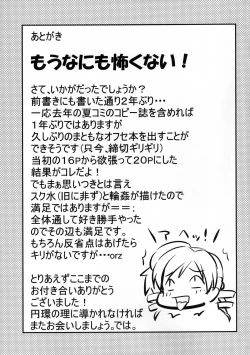 あとがき
もうなにも怖くない！
さて、いかがだったでしょうか？
前書きにも書いた通り2年ぶり・・・
一応去年の夏コミのコピー誌を含めれば
1年ぶりではありますが
久しぶりのまともなオフセ本を出すことが
できそうです（只今、締切ギリギリ）
当初の16Pから欲張って20Pにした
結果がコレだよ！
でもまぁ思いつきとは言え
スク水（旧に非ず）と輪姦が描けたので
満足ではありますが＝＝；
全体通して好き勝手やった
のでその辺も満足です。
もちろん反省点はあげたら
キリがないですが・・・orz
とりあえずここまでの
お付き合いありがとう
ございました！
円環の理に導かれなければ
またお会いしましょう。では。